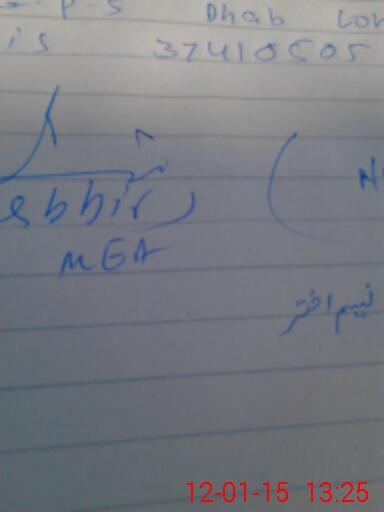 P-S Dhab Lon
is 32410505
ebbir) (N
MGA
نسیم اختر
12-01-15 13:25